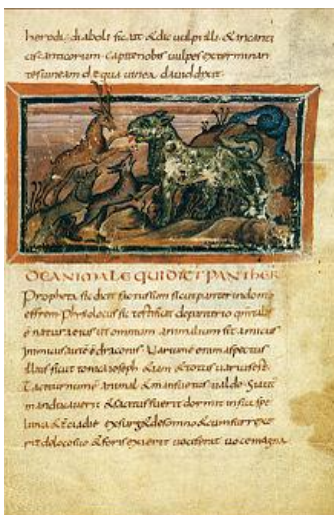 herodi. diaboli sic ait & dic vulpi illi. & in canti
cis canticorum. capite nobis vulpes exterminan
tes vineam de qua vinea david dixit.
DE ANIMALE QUI DICT PANTHER
Propheta sic dicit factus sum sicut panter in domo
effrem Physolocus sic testificat de panterio
e natura eius ut omnium animalium sit amicus
inimicus aute e draconis. Varium e enim aspectus
illius sicut tonica ioseph & totus varius
Taciturnum e animal & mansuetus valdo. Si aute
manducaverit & saciatus fuerit dormit in sua spe
lunca & tercia die exsurg& de somno & cum surrexe
rit de loco suo & foris exierit vociferat voce magna